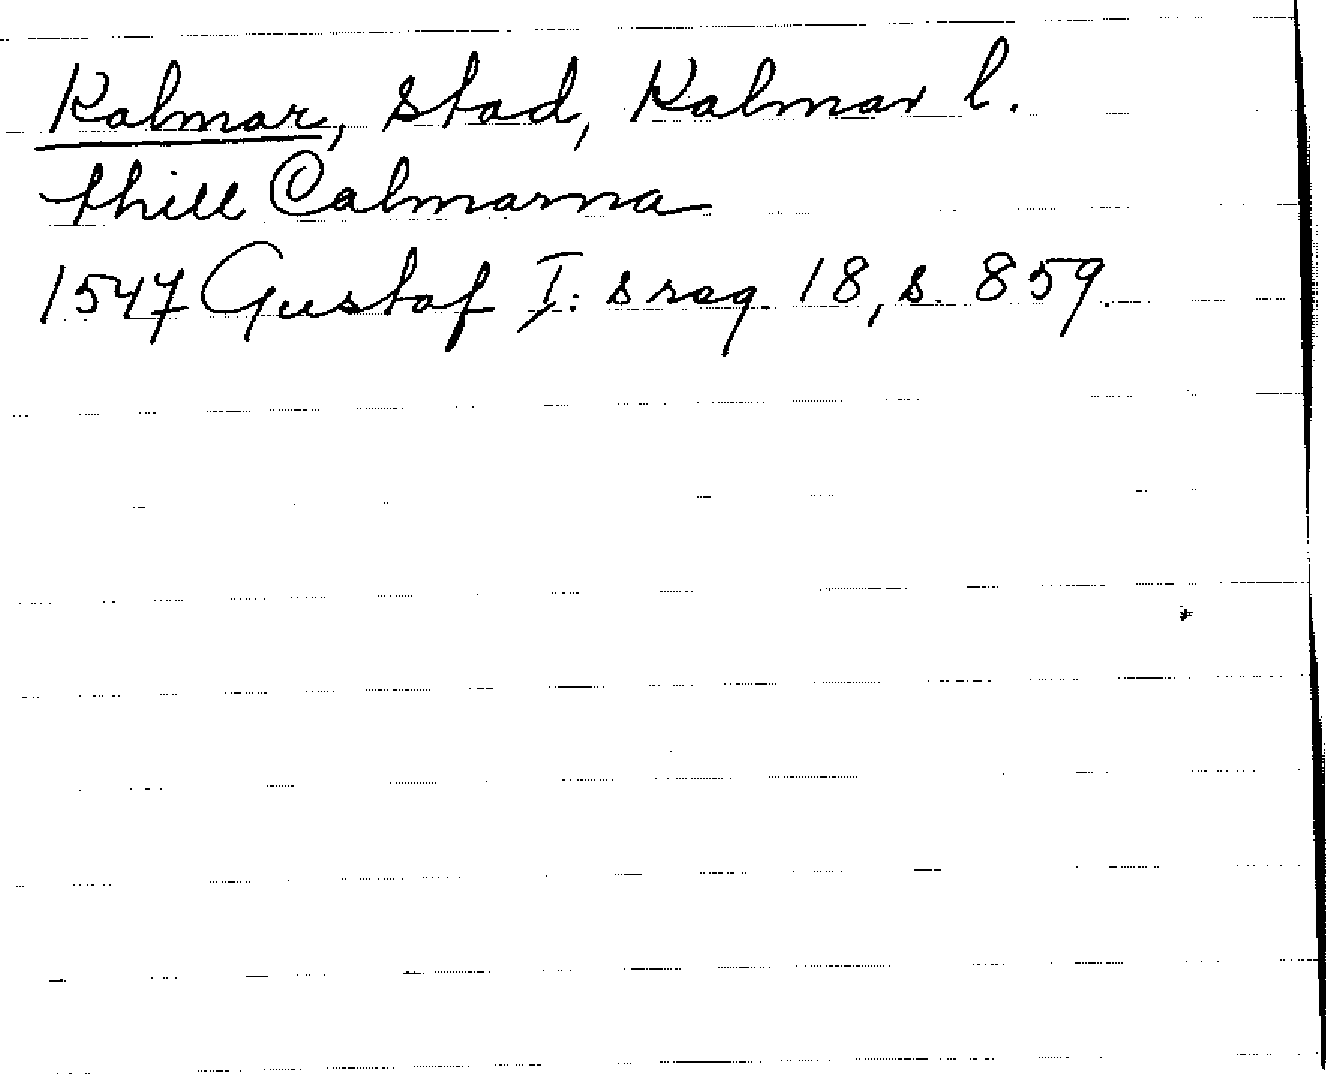 Kalmar, stad, Kalmar l.
thill Calmarna
1547 Gustaf I: s reg. 18, s. 859.